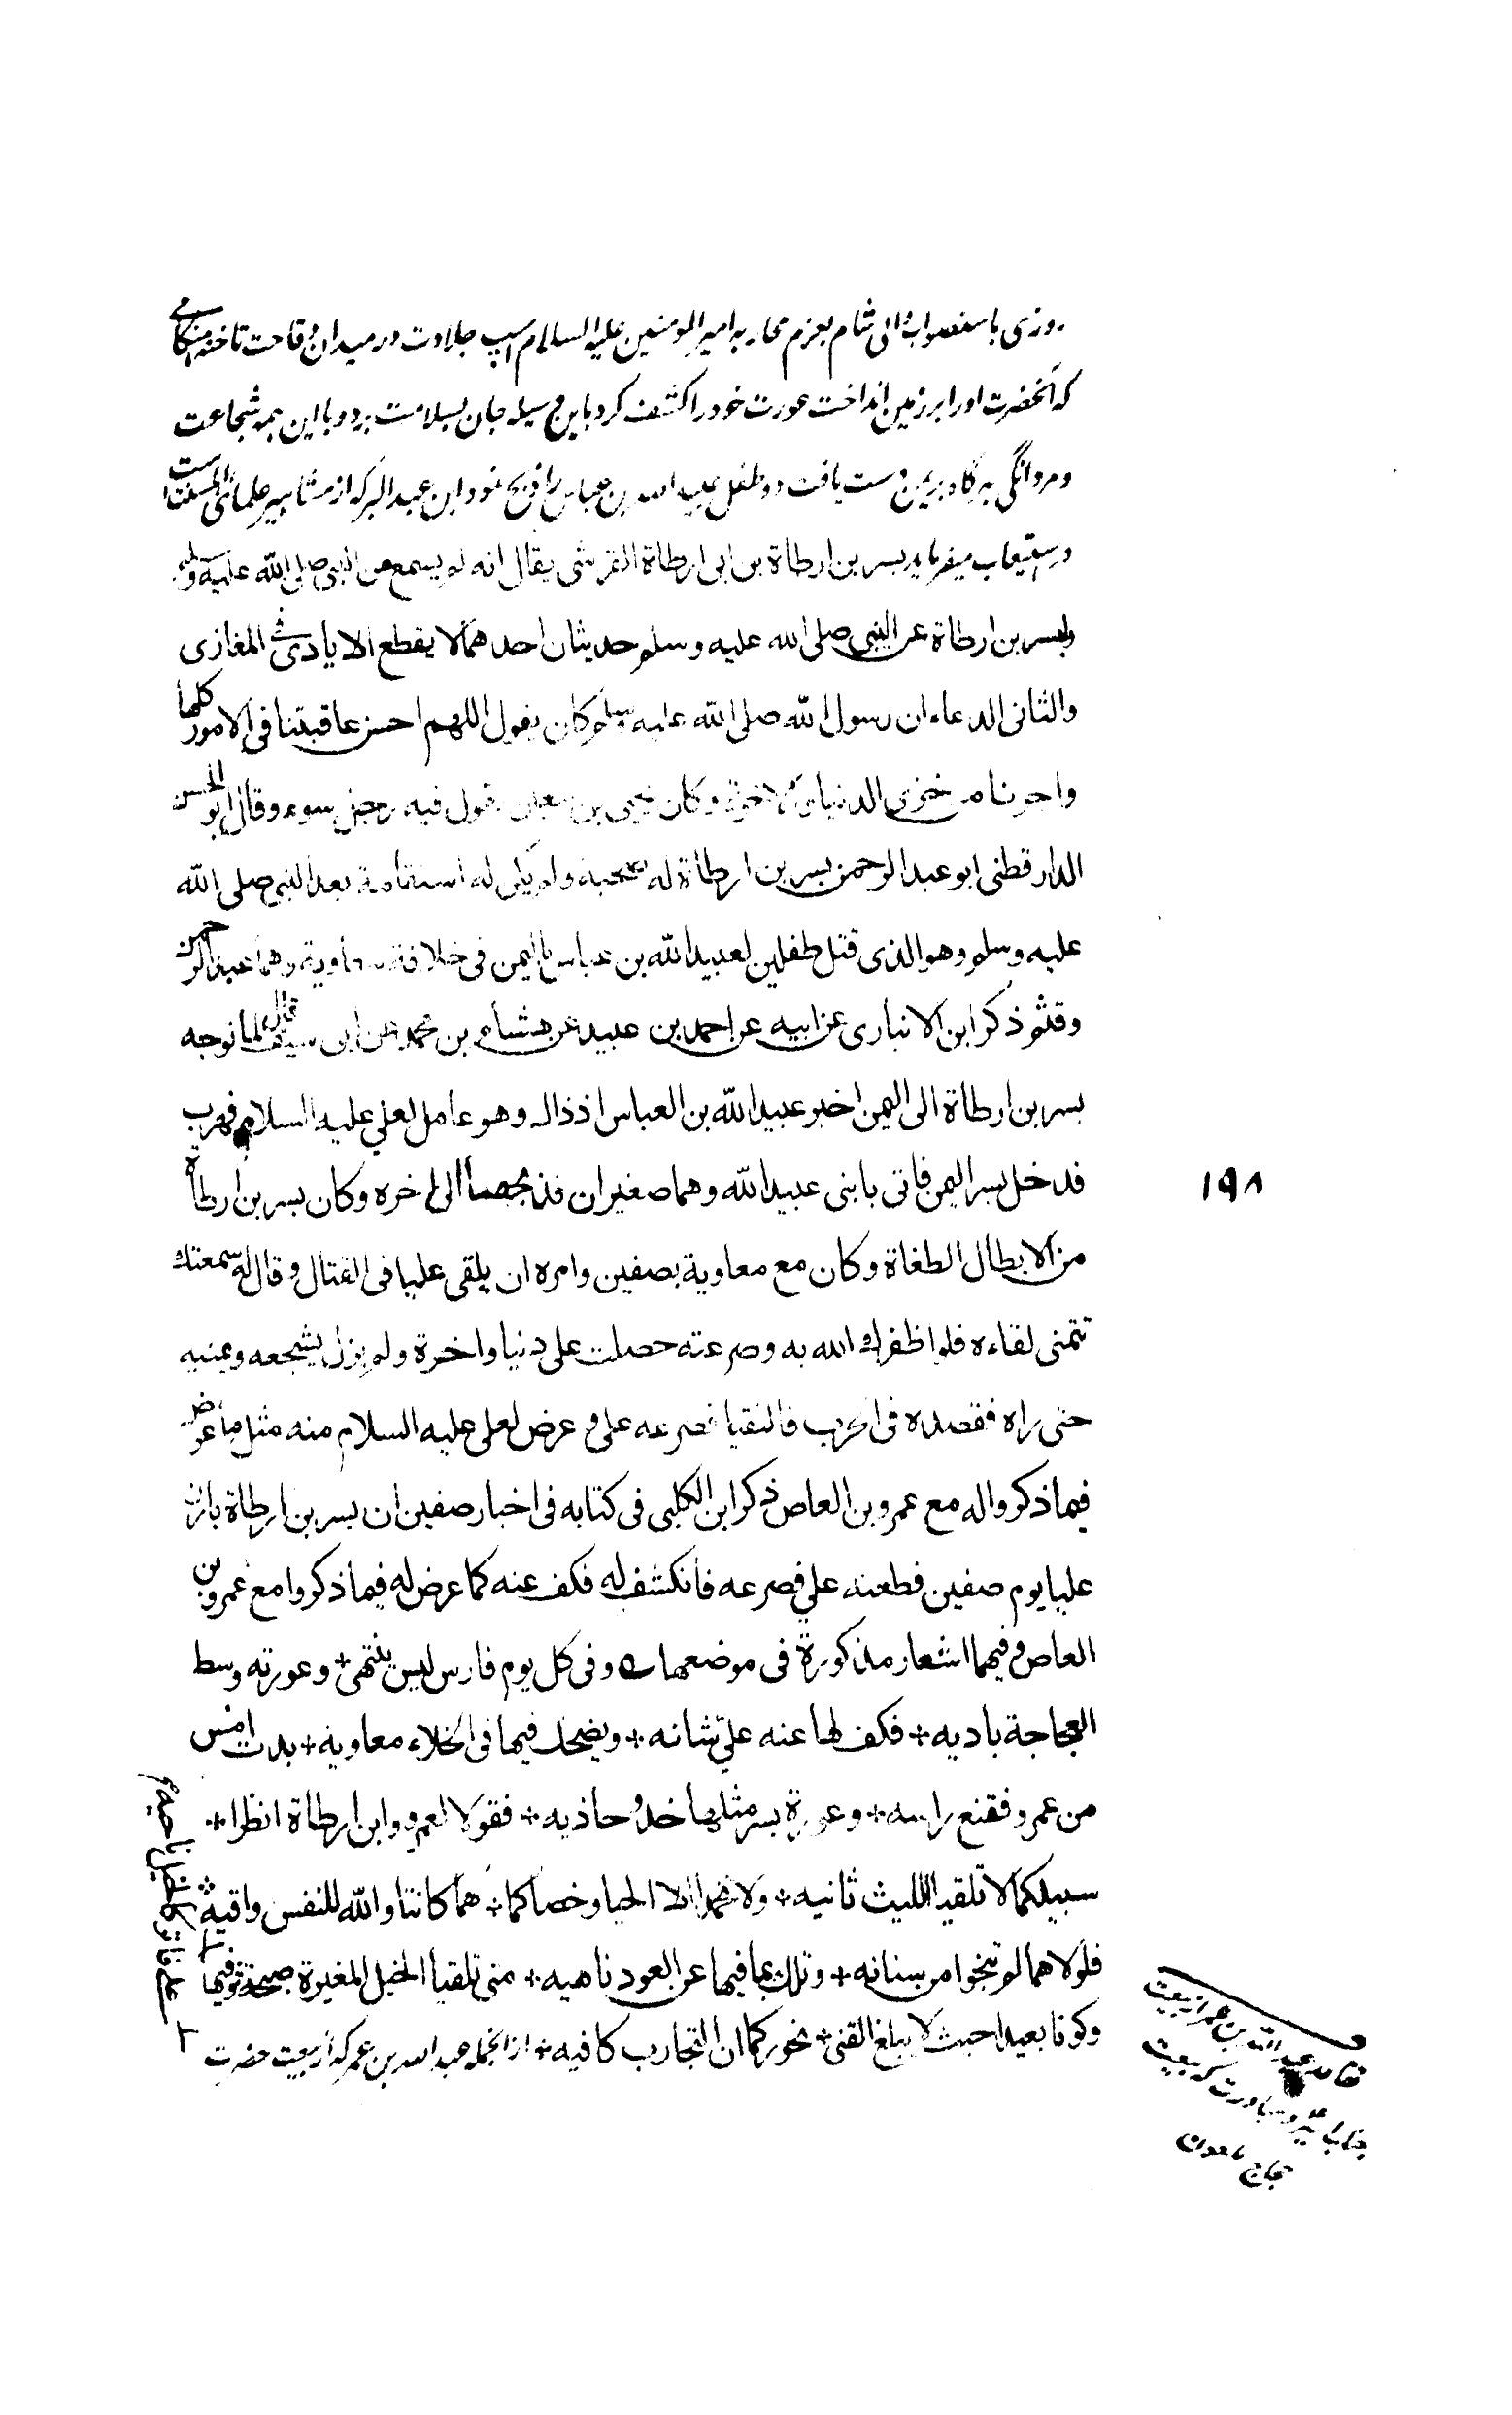 روزی باستصواب والی شام بعزم محاربه امیرالمومنین علیه السلام اسپ جلادت در میدان وقاحت تاخته هنگامی
که آنحضرت او را بر زمین انداخت عورت خود را کشف کرد باین وسیله جان بسلامت برد و با این همه شجاعت
و مردانگی هر گاه بر یمن دست یافت دو طفل عبید الله بن عباس را ذبح نمود ابن عبدالبر که از مشاهیر علمائی اهلسنت است
در استیعاب میفرماید بسر بن ارطاة بن ابی ارطاة القرشی یقال انه لم یسمع من النبی صلی الله علیه وسلم
ولبسر بن ارطاة عن النبی صلی الله علیه وسلم حدیثان احدهما لا یقطع الایادی فی المغازی
والثانی الدعاء ان رسول الله صلی الله علیه وسلم کان یقول اللهم احسن عاقبتنا فی الامور کلها
واجرنا من خزی الدنیا والاخرة وکان یحیی بن معین یقول فیه رجل سوء وقال ابو الحسن
الدارقطنی ابو عبد الرحمن بسر بن ارطاة له صحبة ولم یکن له استقامة بعد النبی صلی الله
علیه وسلم وهو الذی قتل طفلین لعبید الله بن عباس بالیمن فی خلافة معاویة وهما عبد الرحمن
وقثم ذکر ابن الانباری عن ابیه عن احمد بن عبید عن هشام بن محمد عن ابی مخنف قال لما توجه
بسر بن ارطاة الی الیمن اخبر عبید الله بن العباس اذ ذاك وهو عامل لعلی علیه السلام فهرب
فدخل بسر الیمن فاتی بابنی عبید الله وهما صغیران فذبحهما الی اخره وکان بسر بن ارطاة
۱۹۸
من الابطال الطغاة وکان مع معاویة بصفین وامره ان یلقی علیا فی القتال وقال له سمعتك
تتمنی لقاءه فلو اظفرك الله به وصرعته حصلت علی دنیا واخرة ولم یزل یشجعه ویمنیه
حتی راه فقصده فی الحرب فالتقیا فصرعه علی وعرض لعلی علیه السلام منه مثل ما عرض
فیما ذکروا له مع عمرو بن العاص ذکر ابن الکلبی فی کتابه فی اخبار صفین ان بسر بن ارطاة بارز
علیا یوم صفین فطعنه علی فصرعه فانکشف له فکف عنه کما عرض له فیما ذکروا مع عمرو بن
العاص وفیهما اشعار مذکورة فی موضعها وفی کل یوم فارس لیس ینتهی + وعورته وسط
العجاجة بادیه + فکف لها عنه علی سنانه + ویضحك فیها فی الخلاء معاویة + بدت امس
من عمرو فقنع راسه + وعورة بسر مثلها حذو حاذیه + فقولا لعمرو وابن ارطاة انظرا +
سبیلکما لا تلقیا اللیث ثانیه + ولا تحمدا الا الحیا وخصاکما + هما کانتا والله للنفس واقیة
فلولاهما لم تنجوا من سنانه + وتلك بما فیها عن العود ناهیه + متی تلقیا الخیل المغیرة صبحة وفیها
علی فاترکا الخیل ناحیه
وکونا بعیدا حیث لا یبلغ القنی + نحورکما ان التجارب کافیه + از انجمله عبد الله بن عمر که از بیعت حضرت
عبد الله بن عمر از بیعت